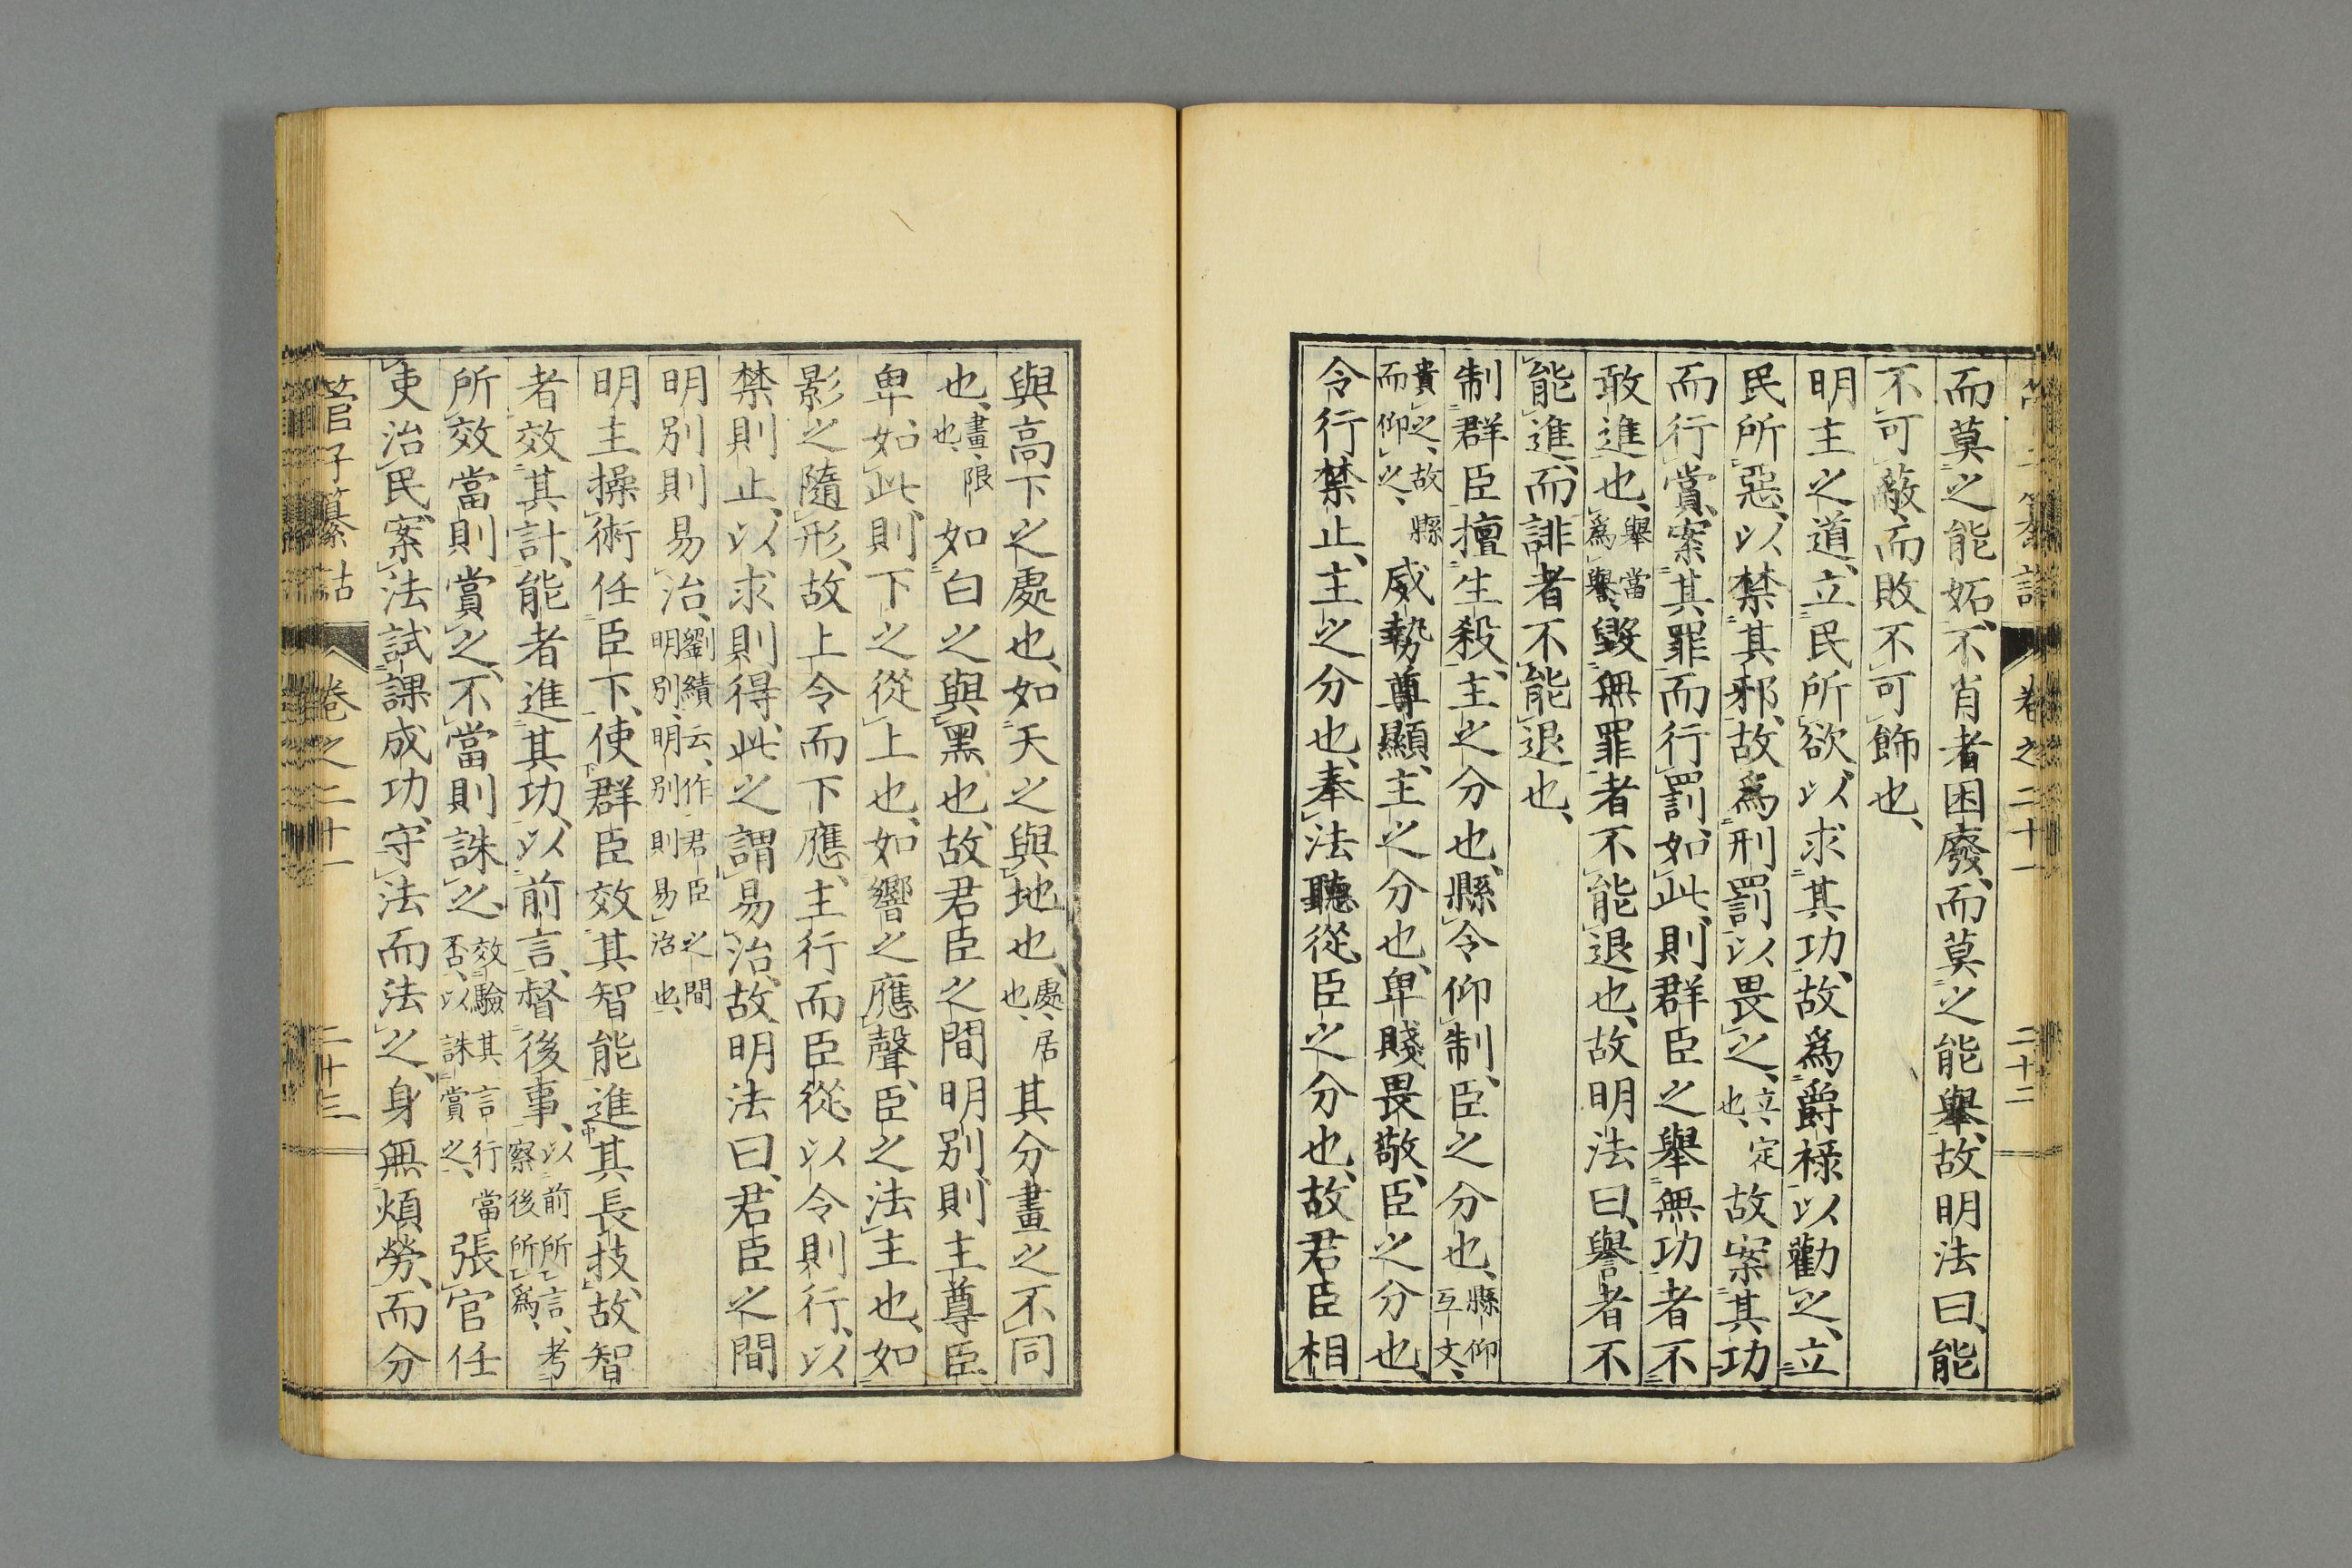 管子纂詁 卷之二十一 二十二
而莫之能妬、不肖者困廢、而莫之能舉、故明法曰、能
不可蔽、而敗不可飾也、
明主之道、立民所欲、以求其功、故爲爵祿以勸之、立
民所惡、以禁其邪、故爲刑罰以畏之、立、定也、故案其功
而行賞、案其罪而行罰、如此、則群臣之舉無功者、不
敢進也、舉當爲譽、毀無罪者、不能退也、故明法曰、譽者不
能進、而誹者不能退也、
制群臣、擅生殺、主之分也、縣令仰制、臣之分也、縣仰互文、
貴之、故縣而仰之、威勢尊顯、主之分也、卑賤畏敬、臣之分也、
令行禁止、主之分也、奉法聽從、臣之分也、故君臣相
與高下之處也、如天之與地也、處、居也、其分畫之不同
也、畫、限也、如白之與黑也、故君臣之間明別、則主尊臣
卑、如此、則下之從上也、如響之應聲、臣之法主也、如
影之隨形、故上令而下應、主行而臣從、以令則行、以
禁則止、以求則得、此之謂易治、故明法曰、君臣之間
明別則易治、劉績云、作君臣之間明別、明別則易治也、
明主操術任臣下、使群臣效其智能、進其長技、故智
者效其計、能者進其功、以前言、督後事、以前所言、考察後所爲、
所效當則賞之、不當則誅之、效驗其言行當否、以誅賞之、張官任
吏治民、案法試課成功、守法而法之、身無煩勞、而分
管子纂詁 卷之二十一 二十三